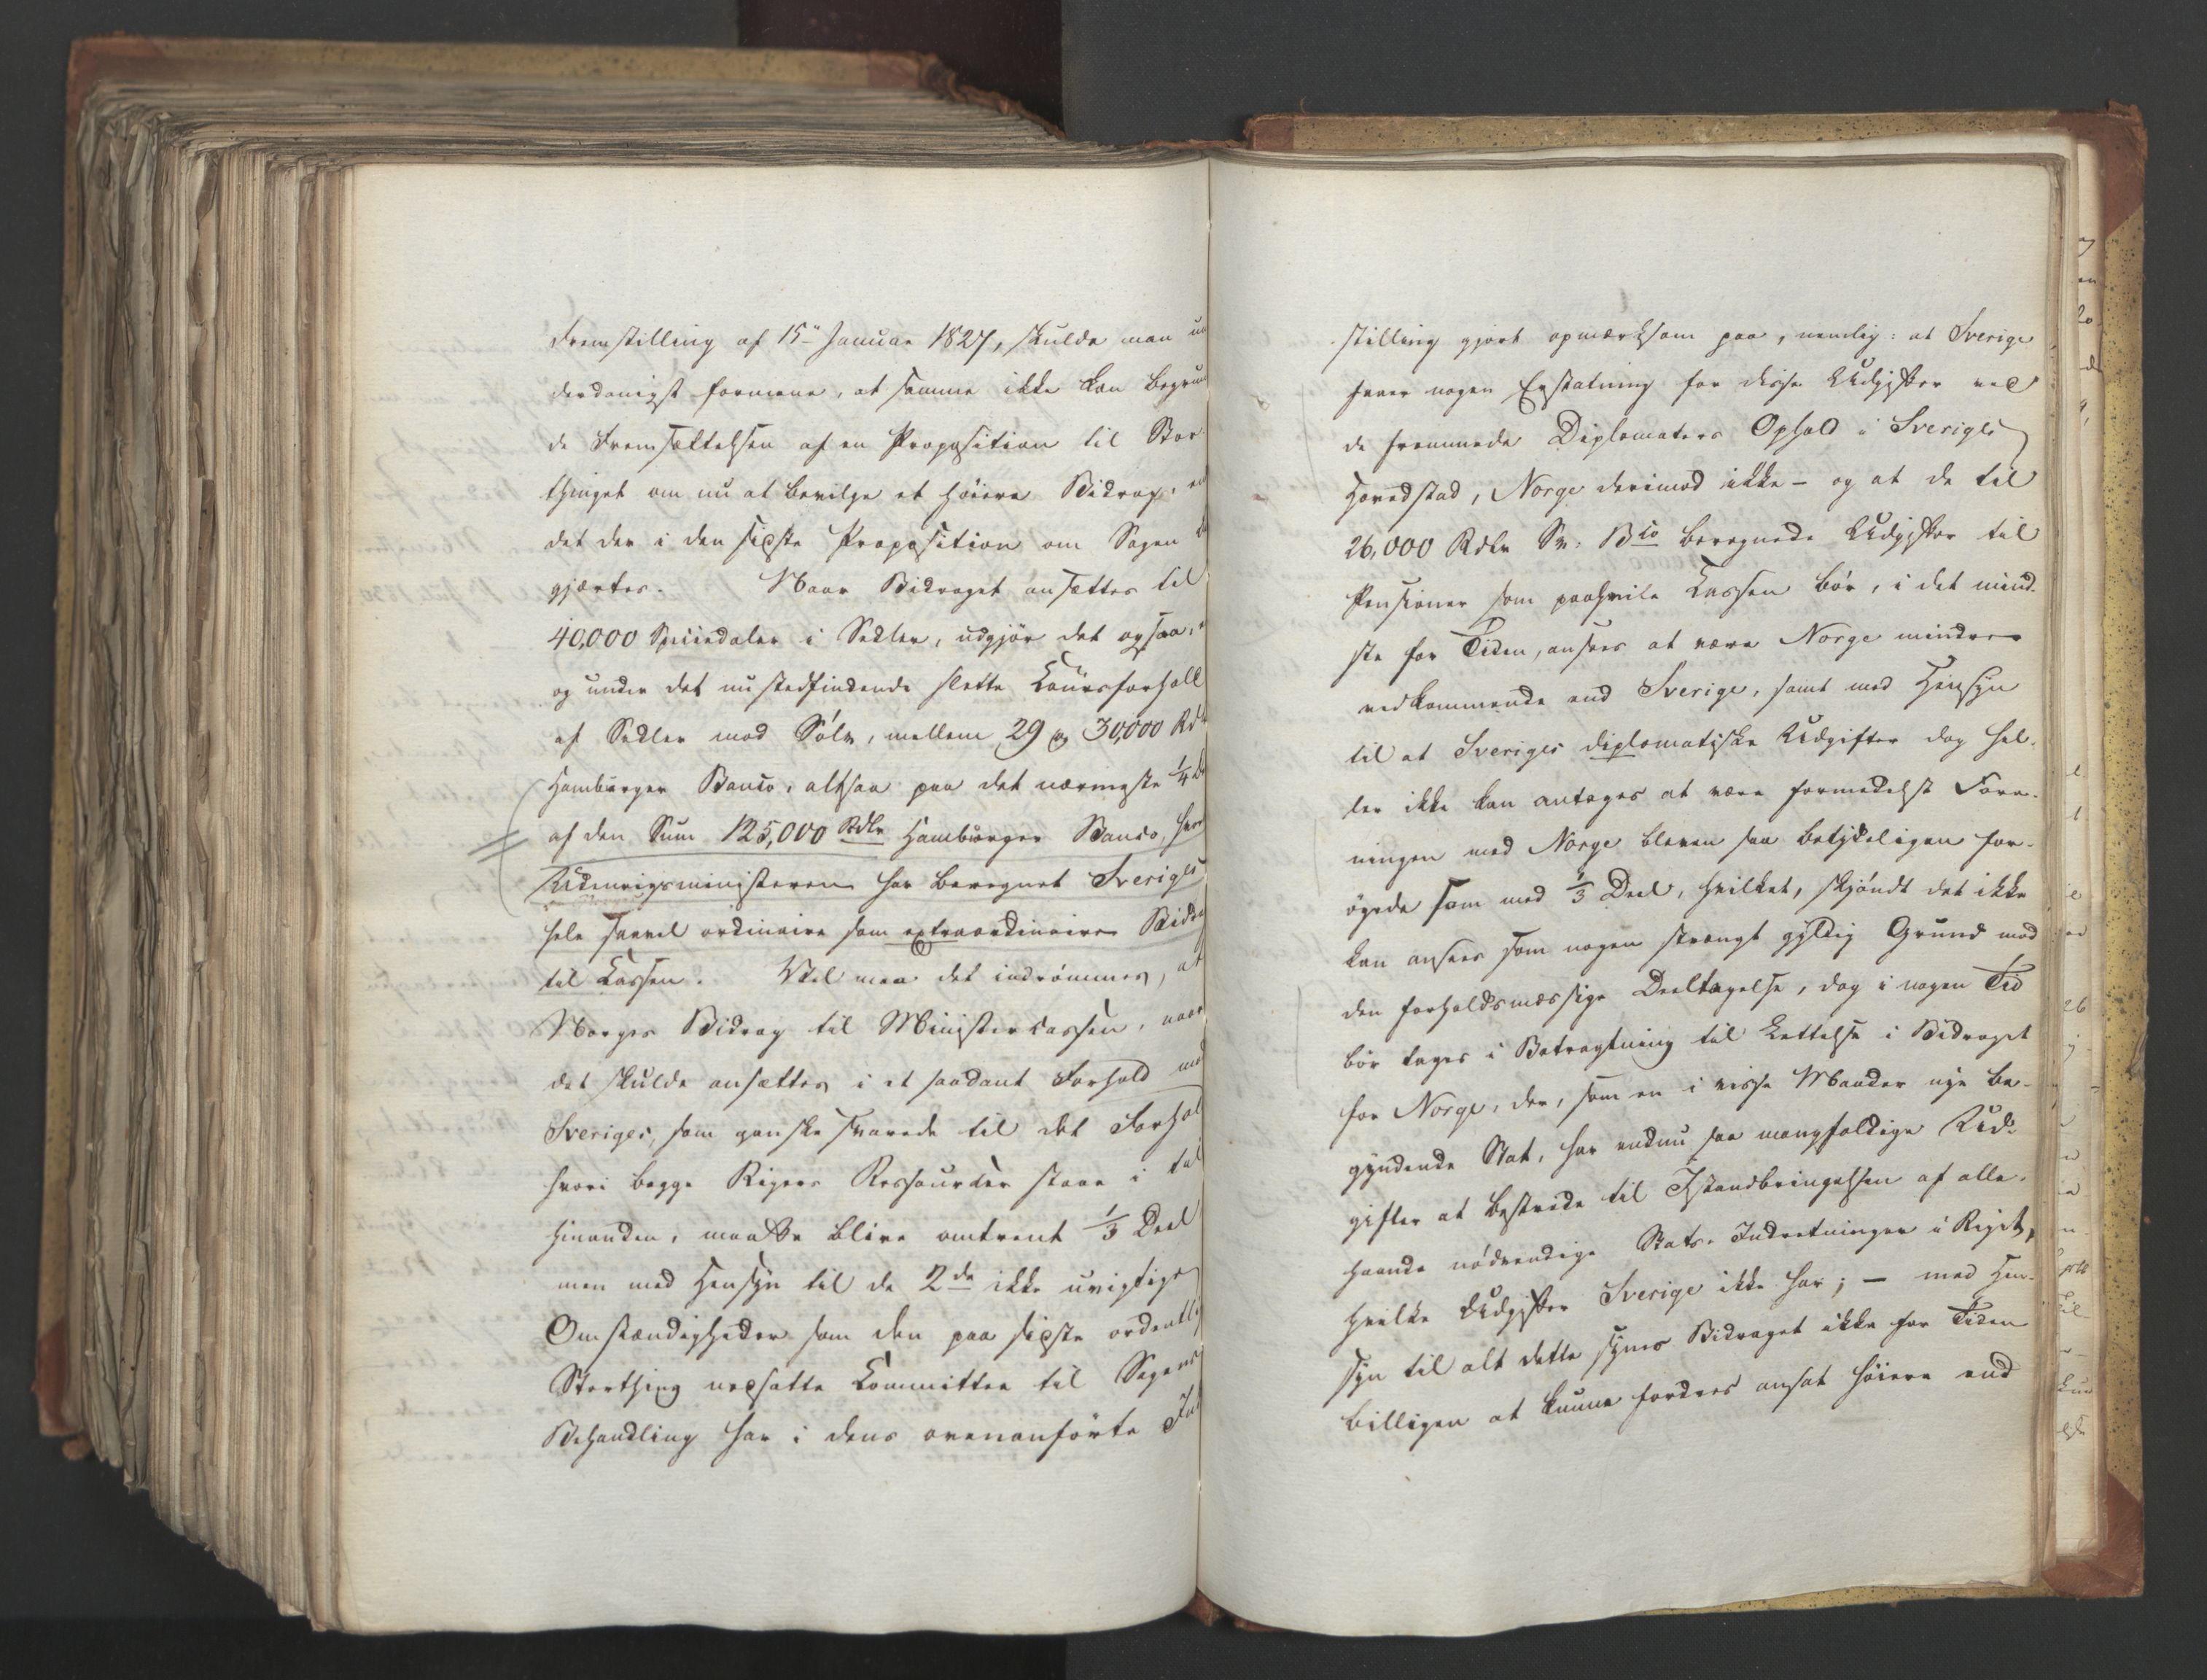 Fremstilling af 15de Januar 1827, skulde man un
derdanigst formene, at samme ikke kan begrun
de Fremsættelsen af en Proposition til Stor-
thinget om nu at bevilge et høiere Bidrag, en
det der i den sidste Proposition om Sagen
gjærtes. Naar Bidraget ansættes til
40,000 Speciedaler i Sedler, udgjør det ogsaa,
og under det nu stedfindende slette Coursforhold
af Sedler mod Sølv, mellem 29 og 30,000 Rdr
Hamburger Banco, altsaa paa det nærmeste 1/4 De
af den Sum 125,000 Rdlr Hamburger Banco, hvor
Udenrigsministeren har beregnet Sveriges
hele saavel ordinaire som extraordinaire Bidra
til Cassen. Vel maa det indrømmes, at
Norges Bidrag til Ministercassen, naar
det skulde ansættes i et saadant Forhold med
Sveriges, som ganske svarede til det Forhol
hvori begge Rigers Ressourcer staae i til
hinanden, maatte blive omtrent 1/3 Deel
men med Hensyn til de 2de ikke uvigtige
Omstændigheder som den paa sidste ordentli
Storthing nedsatte Committee til Sagens
Behandling har i dens ovenanførte Ind
stilling gjort opmærksom paa, nemlig: at Sverige
haver nogen Erstatning for disse Udgifter ved
de fremmede Diplomaters Ophold i Sveriges
Hovedstad, Norge derimod ikke – og at de til
26,000 Rdlr Sv. Bco beregnede Udgifter til
Pensioner som paahvile Cassen bør, i det mind-
ste for Tiden, ansees at være Norge mindre
vedkommende end Sverige, samt med Hensyn
til at Sveriges diplomatiske Udgifter dog hel-
ler ikke kan antages at være formedelst Fore-
ningen med Norge bleven saa betydeligen for-
øgede som med 1/3 Deel, hvilket, skjøndt det ikke
kan ansees som nogen strængt gyldig Grund mod
den forholdsmæssige Deeltagelse, dog i nogen Tid
bør tages i Betragtning til Lettelse i Bidraget
for Norge, der, som en i visse Maader nye be-
gyndende Stat, har endnu saa mangfoldige Ud-
gifter at bestride til Istandbringelsen af alle-
haande nødvendige Stats-Indretninger i Riget,
hvilke Udgifter Sverige ikke har; – med Hen-
syn til alt dette synes Bidraget ikke for Tiden
billigen at kunne fordres ansat høiere end